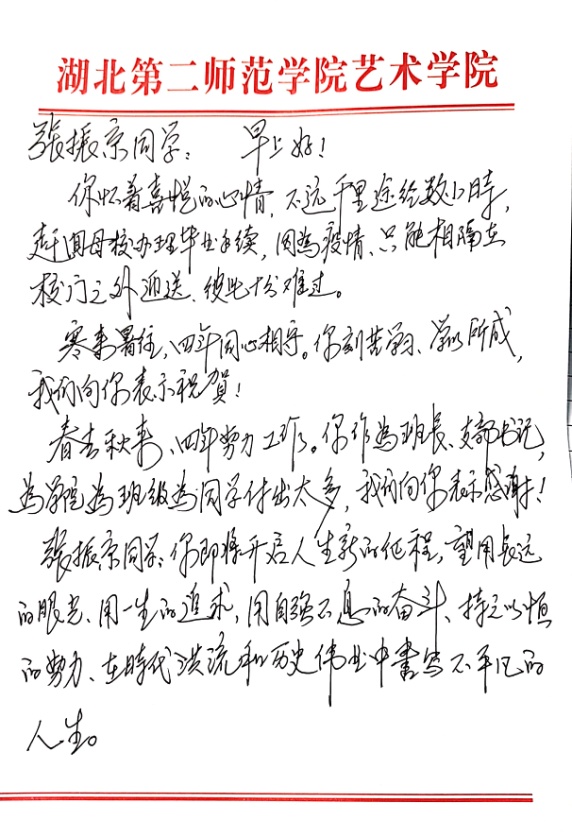 湖北第二师范学院艺术学院
張振京同学：早上好！
你怀着喜悦的心情，不远千里途经数小時，
赶回母校办理毕业手续，因為疫情，只能相隔在
校门之外迎送、彼此十分难过。
寒来暑往，四年同心相守。你刻苦学习、学以所成，
我们向你表示祝賀！
春去秋来、四年努力工作。你作為班长、支部书记，
為学院為班级為同学付出太多，我们向你表示感谢！
張振京同学：你即将开启人生新的征程，望用长远
的眼光、用一生的追求，用自强不息的奋斗、持之以恒
的努力、在時代洪流和历史伟业中書写不平凡的
人生。